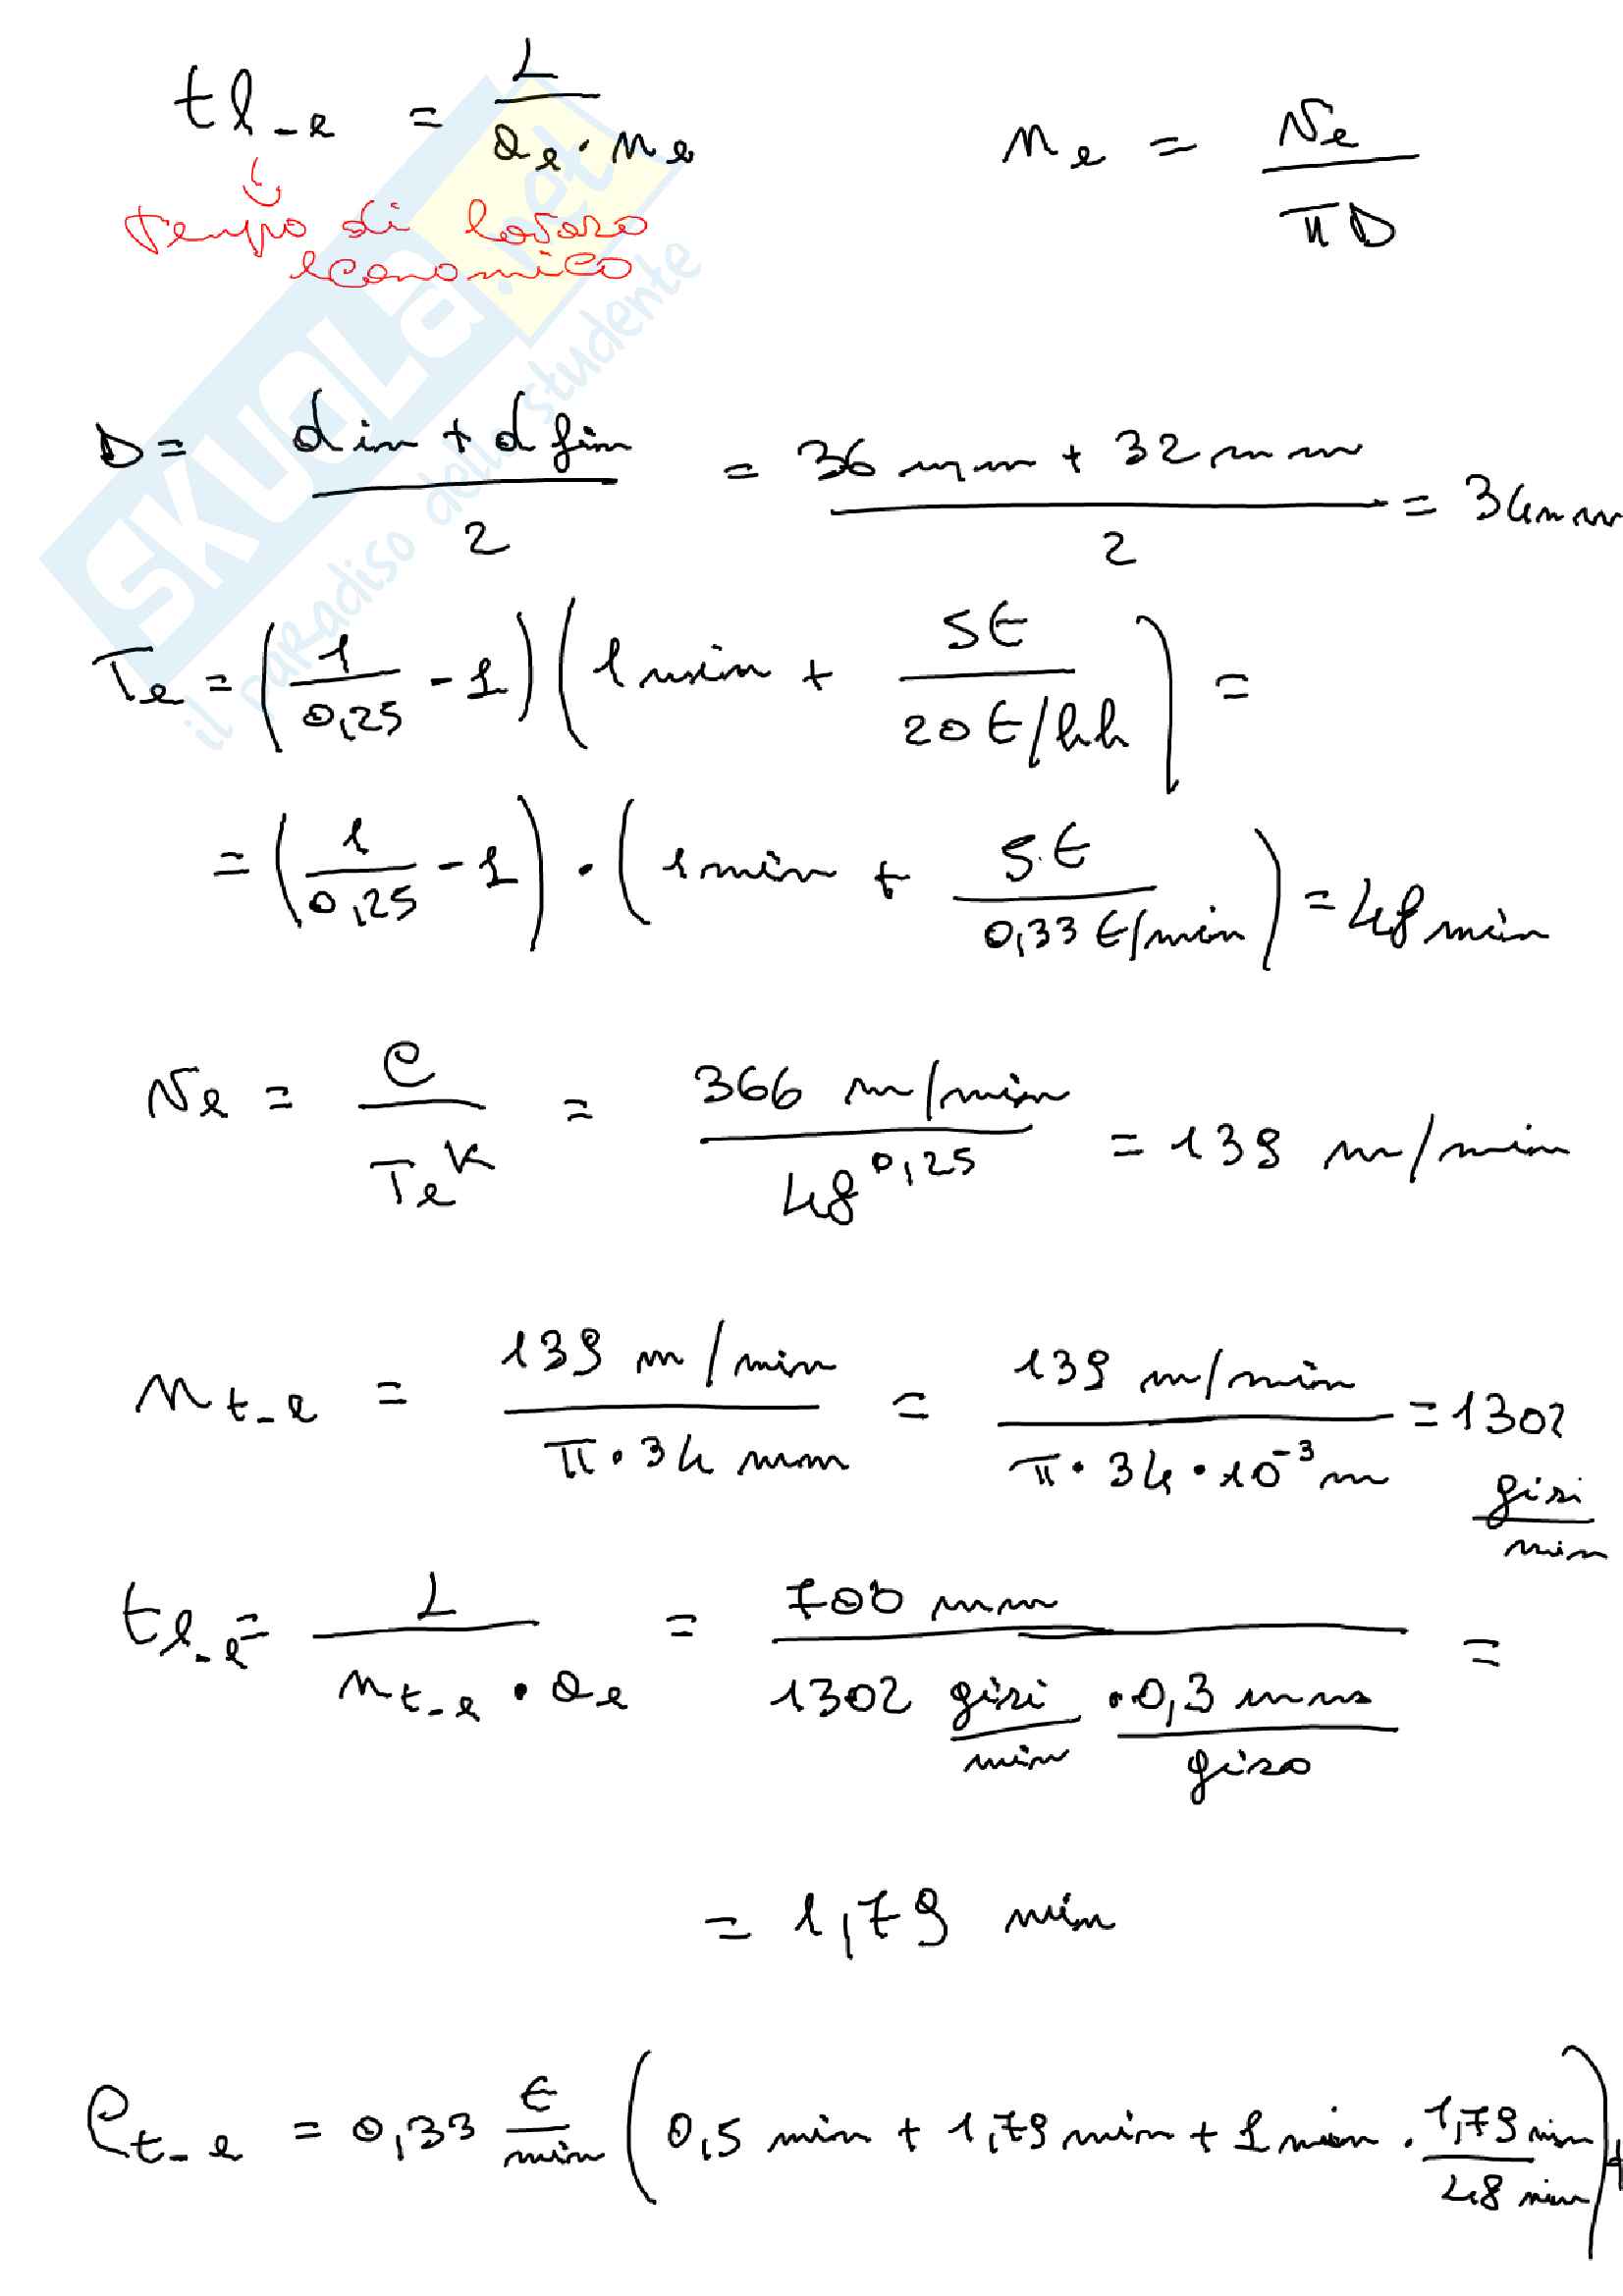 tl_e = L / (a_e · n_e)
n_e = v_e / (π D)
tempo di lavoro
economico
D = (d in + d fin) / 2 = (36 mm + 32 mm) / 2 = 34 mm
T_e = (1/0,25 - 1) (1 min + 5€ / 20 €/hh) =
= (1/0,25 - 1) · (1 min + 5€ / 0,33 €/min) = 48 min
v_e = C / T_e^k = 366 m/min / 48^0,25 = 139 m/min
n_t_e = 139 m/min / (π · 34 mm) = 139 m/min / (π · 34 · 10^-3 m) = 1302 giri/min
tl_e = L / (n_t_e · a_e) = 700 mm / (1302 giri/min · 0,3 mm/giro) =
= 1,79 min
C_t_e = 0,33 €/min (0,5 min + 1,79 min + 1 min · 1,79 min / 48 min) +
SKUOLa.net
il paradiso dello studente